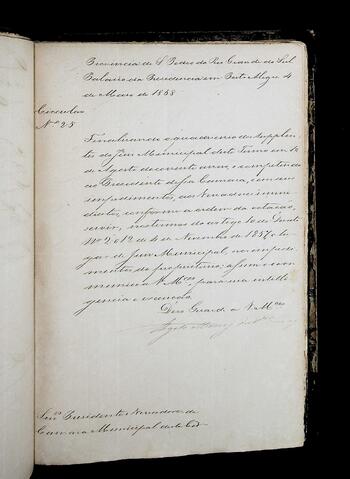 Provincia de S. Pedro do Rio Grande do Sul
Palacio da Presidencia em Porto Alegre 4
de Maio de 1858
Circular
Nº 28
Finalisando o quadriennio dos Supplen-
tes do Juiz Municipal deste Termo em 12
de Agosto do corrente anno, e competindo
ao Presidente dessa Camara, e em seus
impedimentos, aos Vereadores imme-
diatos, conforme a ordem da votação,
servir, nos termos do artigo 1º do Decreto
Nº 2012 de 4 de Novembro de 1857 o lu-
gar de Juiz Municipal, nos impedi-
mentos do proprietario; assim o com-
munico a V. Mces para sua intelli-
gencia e execução.
Deos Guarde a V. Mces
Snres Presidente e Vereadores da
Camara Municipal desta Cid.